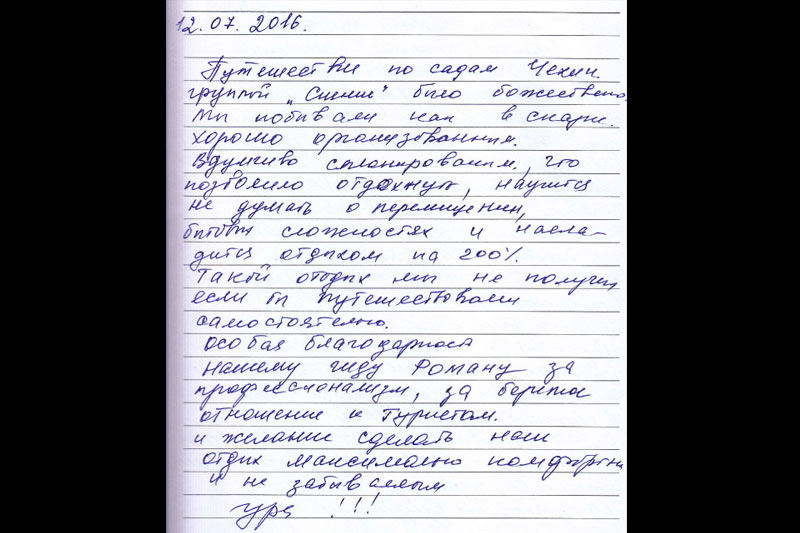 12.07.2016.
Путешествие по садам Чехии
группой „Сиели" было божествено.
Мы побывали как в скарж.
хорошо организованним.
Вдумчиво спланированим, что
позволило отдохнут, научится
не думать о перемищении,
битовых сложностях и насла-
дится отдыхом на 200%.
Такой отдых мы не получим
если бы путешествовали
самостоятельно.
особая благодарност
нашему гиду Роману за
профессионализм, за бережное
отношение к туристам.
и желание сделать наш
отдых максимально комфортн
и не забываемым
ура !!!